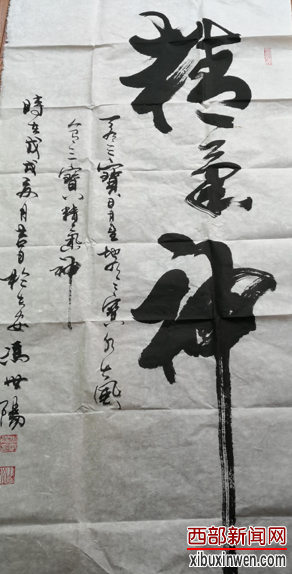 精氣神
天有三寶日月星地有三寶水火風
人有三寶精氣神
時在戊戌夏月吉日於長安馮世陽
西部新闻网
xibuxinwen.com